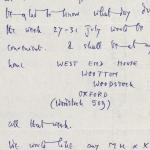 be glad to know what day du
the week 27-31 July would be
convenient. & shall be at
home WEST END HOUSE
WOOTTON
WOODSTOCK
OXFORD
(Woodstock 509)
all that week.
We would like any